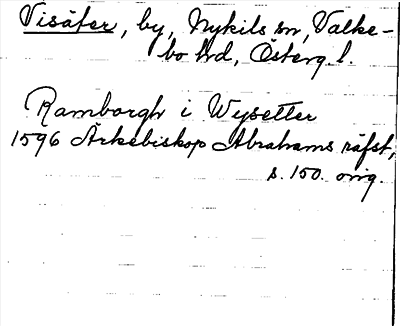 Visäter, by, Nykils sn, Valke-
bo hd, Österg. l.
Ramborgh i Wysetter
1596 Ärkebiskop Abrahams räfst,
s. 150. orig.